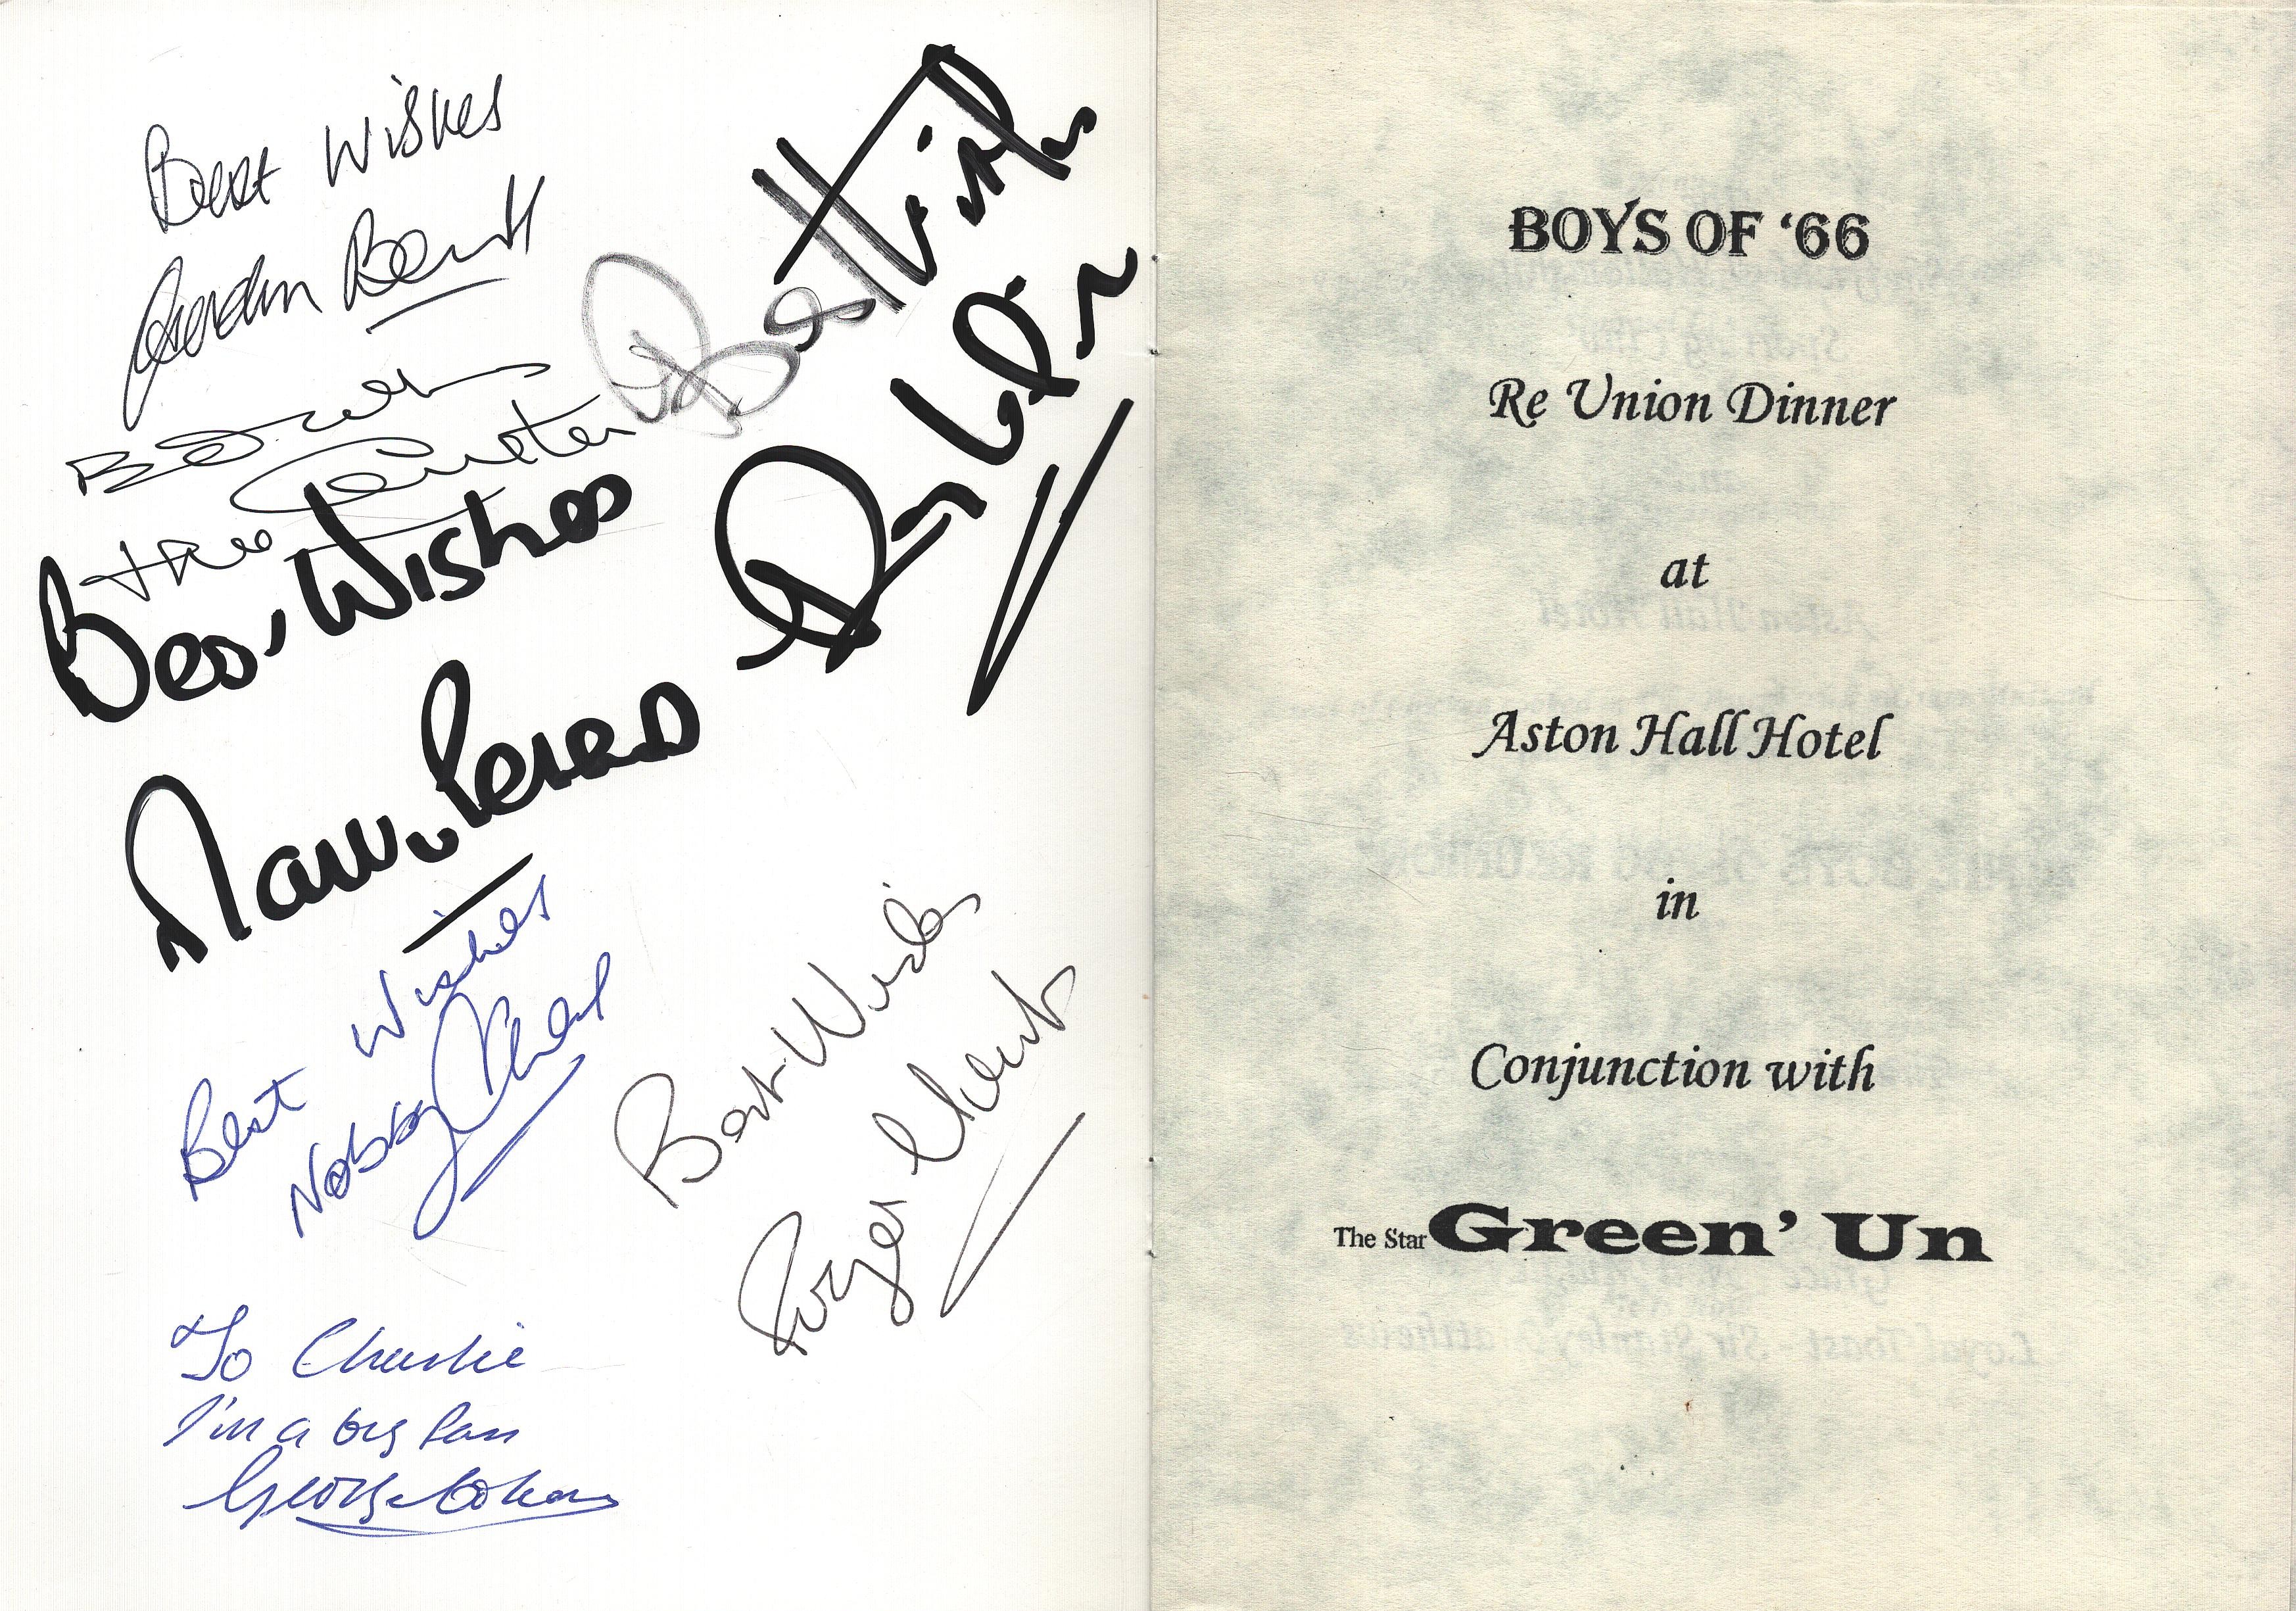 Best Wishes
Gordon Banks
Best Wishes
Ray Wilson
Best Wishes
Martin Peters
Best Wishes
Nobby Stiles
Best Wishes
Roger Hunt
To Charlie
I'm a big fan
George Cohen
BOYS OF ‘66
Re Union Dinner
at
Aston Hall Hotel
in
Conjunction with
The Star Green’ Un